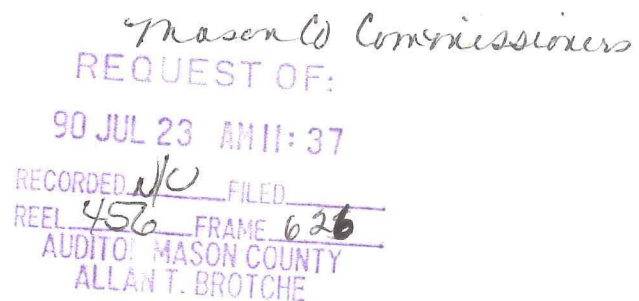 Mason Co Commissioners
REQUEST OF:
90 JUL 23 AM 11: 37
RECORDED N/C FILED
REEL 456 FRAME 626
AUDITO MASON COUNTY
ALLAN T. BROTCHE